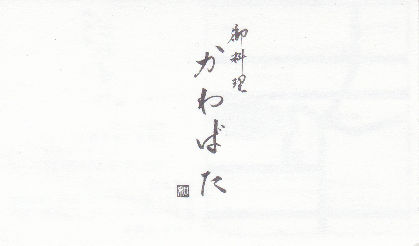 御料理
かわばた